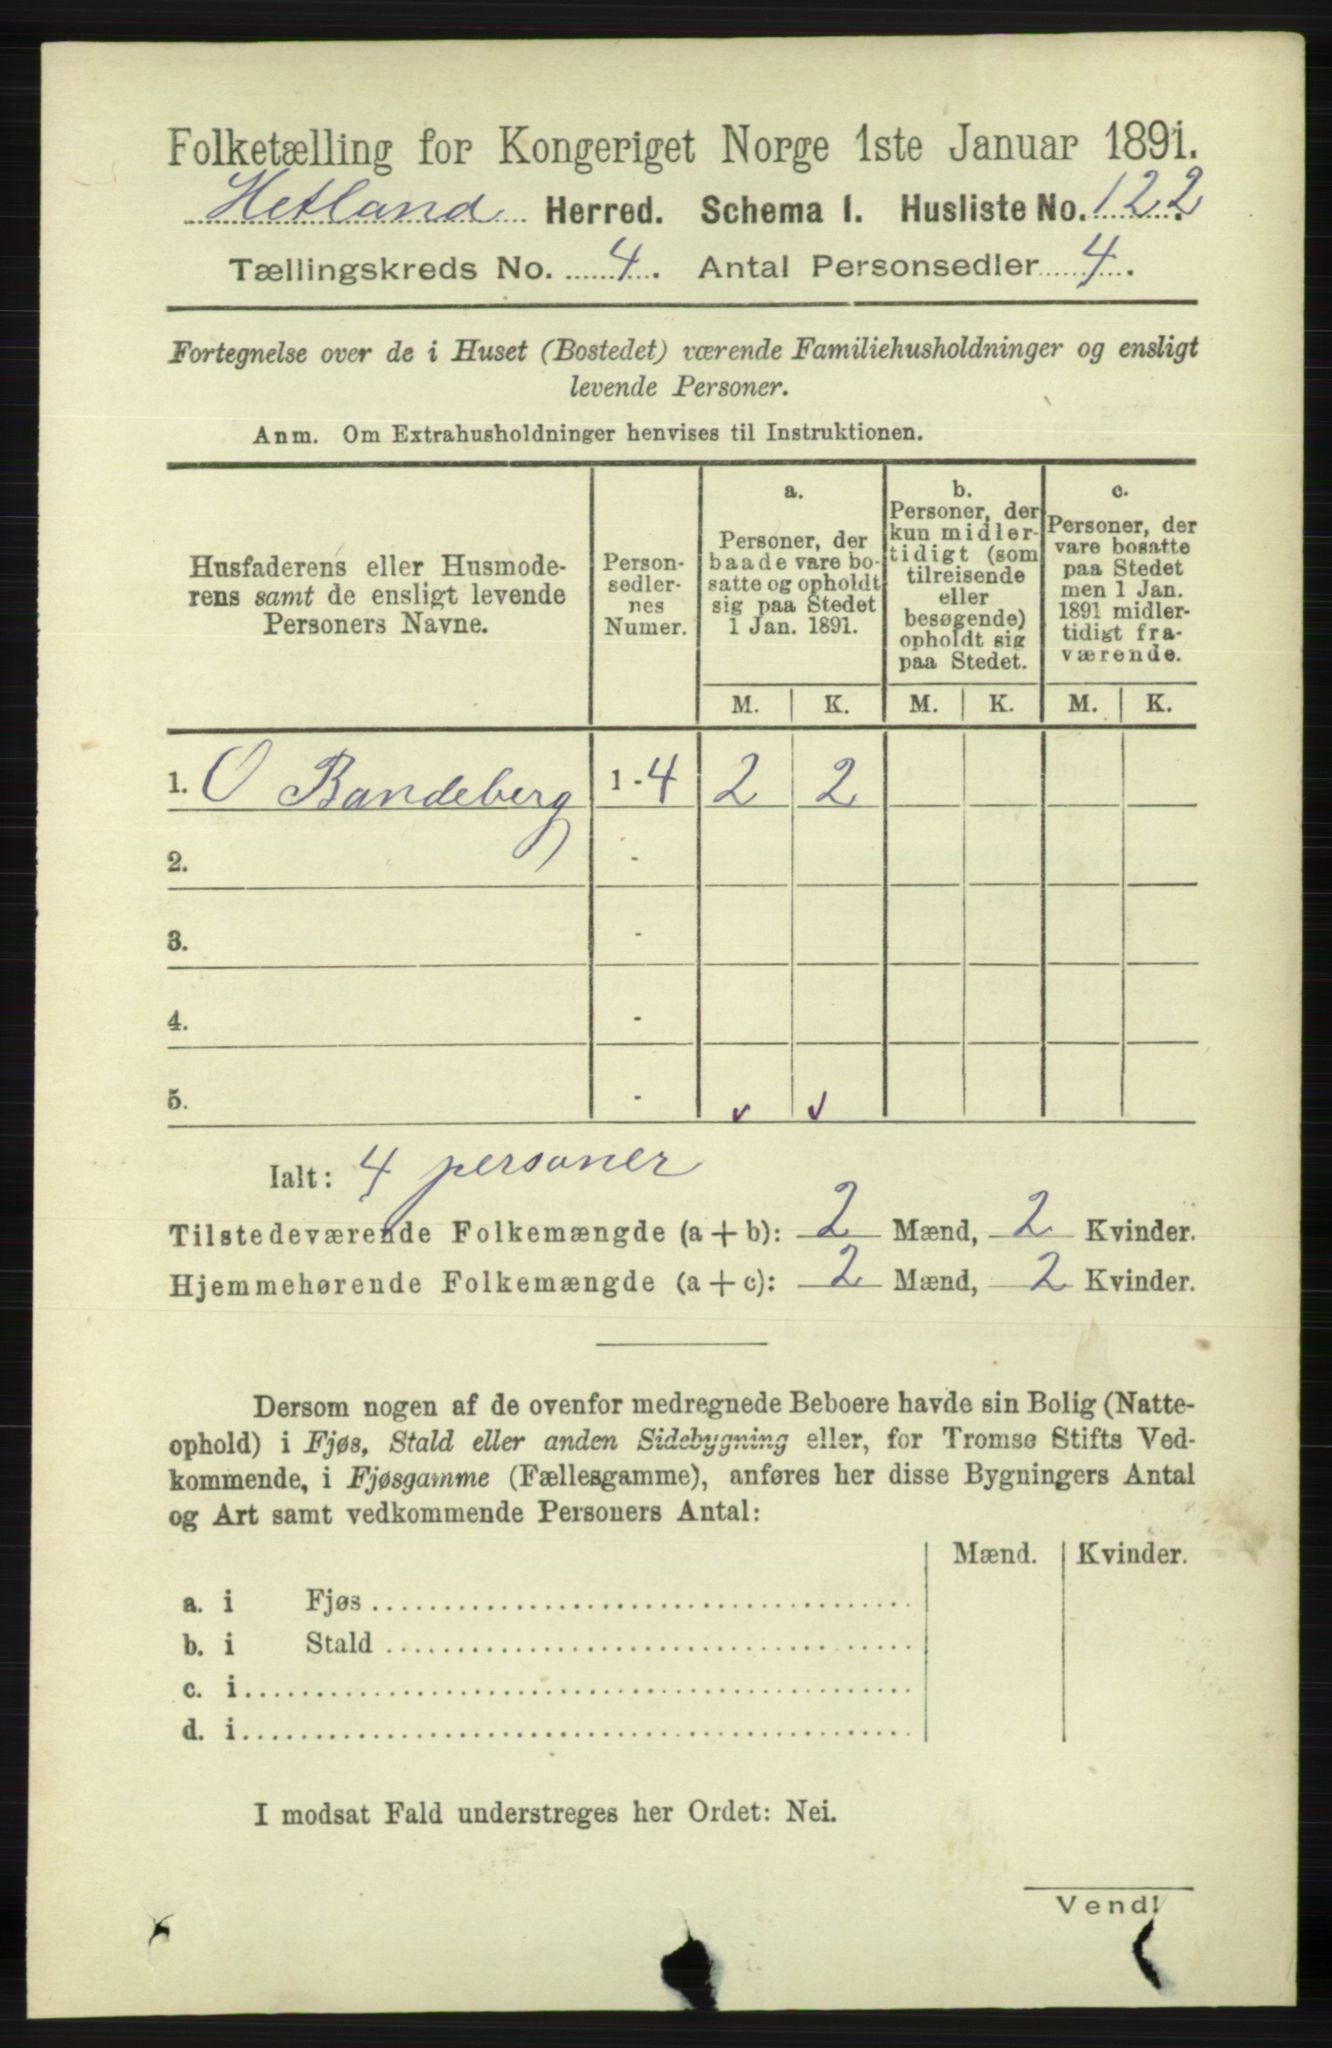 Folketælling for Kongeriget Norge 1ste Januar 1891.
Hetland Herred. Schema 1. Husliste No. 122.
Tællingskreds No. 4. Antal Personsedler 4.
Fortegnelse over de i Huset (Bostedet) værende Familiehusholdninger og ensligt
levende Personer.
Anm. Om Extrahusholdninger henvises til Instruktionen.
Husfaderens eller Husmode-
rens samt de ensligt levende
Personers Navne.
Person-
sedler-
nes
Numer.
a.
Personer, der
baade vare bo-
satte og opholdt
sig paa Stedet
1 Jan. 1891.
b.
Personer, der
kun midler-
tidigt (som
tilreisende
eller
besøgende)
opholdt sig
paa Stedet.
c.
Personer, der
vare bosatte
paa Stedet
men 1 Jan.
1891 midler-
tidigt fra-
værende.
M. K. M. K. M. K.
1. O Bandeberg 1-4 2 2
2. -
3. -
4. -
5. -
Ialt: 4 personer
Tilstedeværende Folkemængde (a + b): 2 Mænd, 2 Kvinder.
Hjemmehørende Folkemængde (a + c): 2 Mænd, 2 Kvinder.
Dersom nogen af de ovenfor medregnede Beboere havde sin Bolig (Natte-
ophold) i Fjøs, Stald eller anden Sidebygning eller, for Tromsø Stifts Ved-
kommende, i Fjøsgamme (Fællesgamme), anføres her disse Bygningers Antal
og Art samt vedkommende Personers Antal:
Mænd. Kvinder.
a. i Fjøs
b. i Stald
c. i
d. i
I modsat Fald understreges her Ordet: Nei.
Vend!